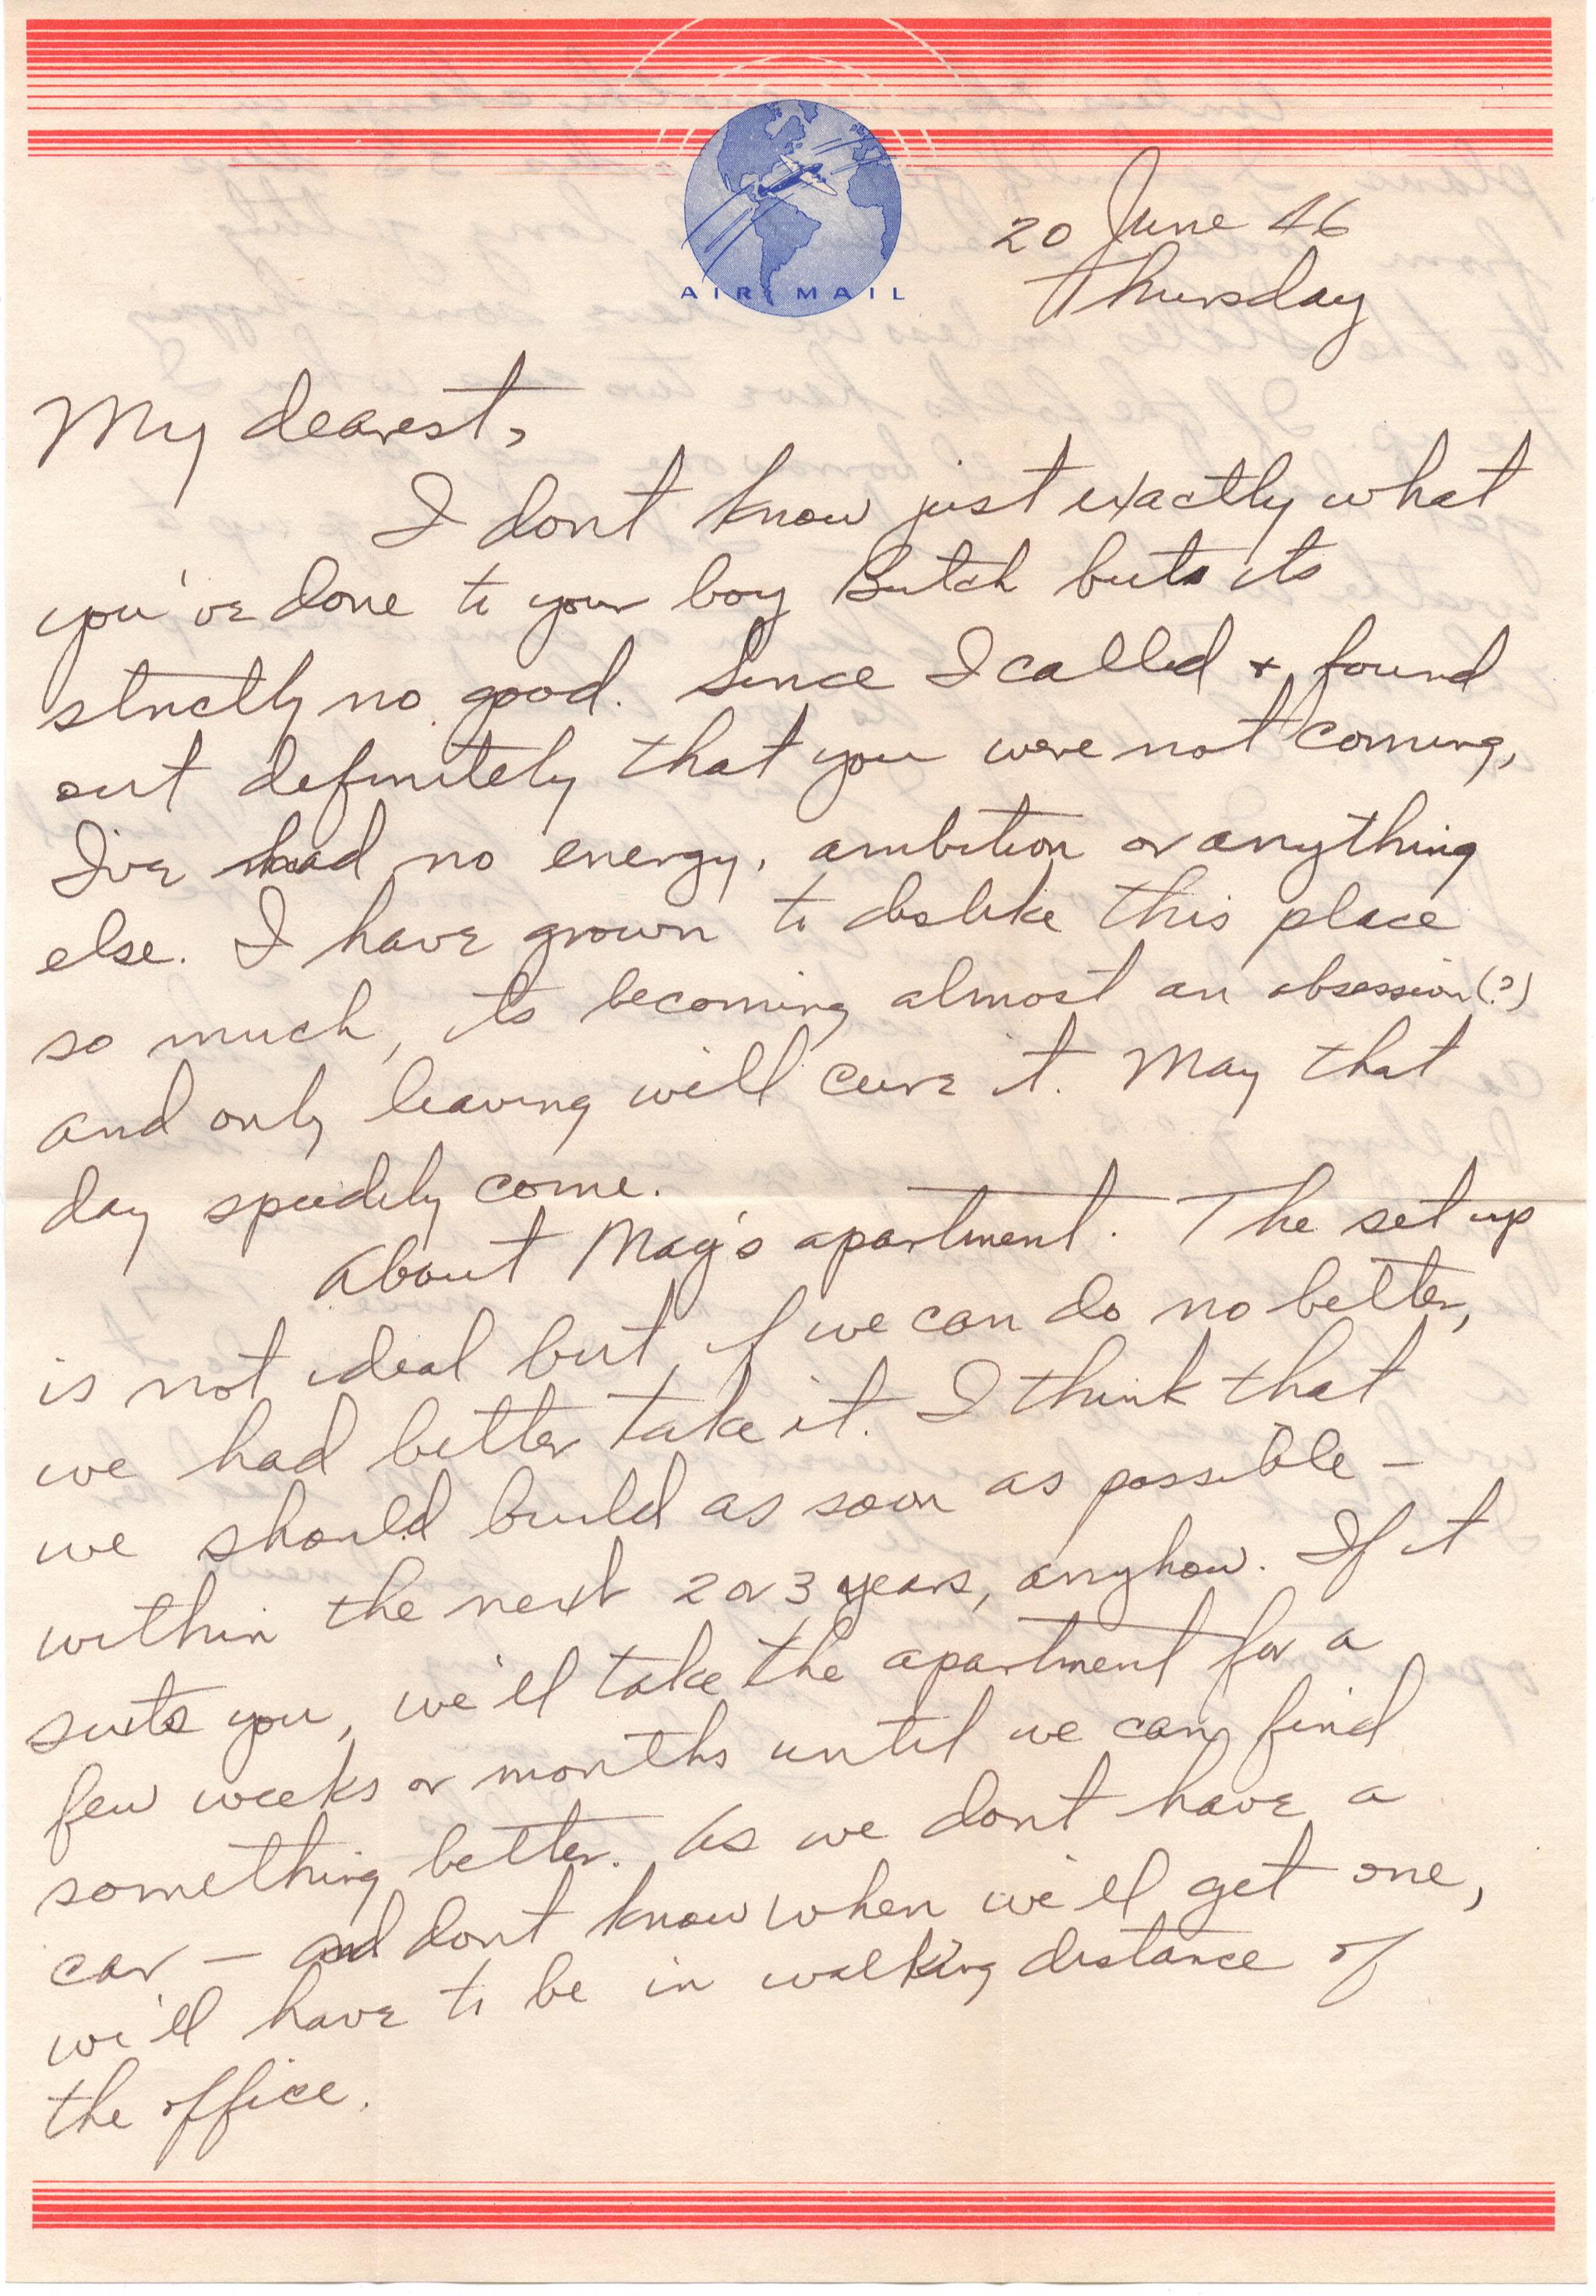 AIR MAIL
20 June 46
Thursday
My dearest,
I dont know just exactly what
you've done to your boy Butch but its
strictly no good. Since I called + found
out definitely that you were not coming,
I've had no energy, ambition or anything
else. I have grown to dislike this place
so much, its becoming almost an obsession(?)
and only leaving will cure it. May that
day speedily come.
About Mag's apartment. The set up
is not ideal but, if we can do no better,
we had better take it. I think that
we should build as soon as possible –
within the next 2 or 3 years, anyhow. If it
suits you, we'll take the apartment for a
few weeks or months until we can find
something better. As we dont have a
car – and dont know when we'll get one,
we'll have to be in walking distance of
the office.